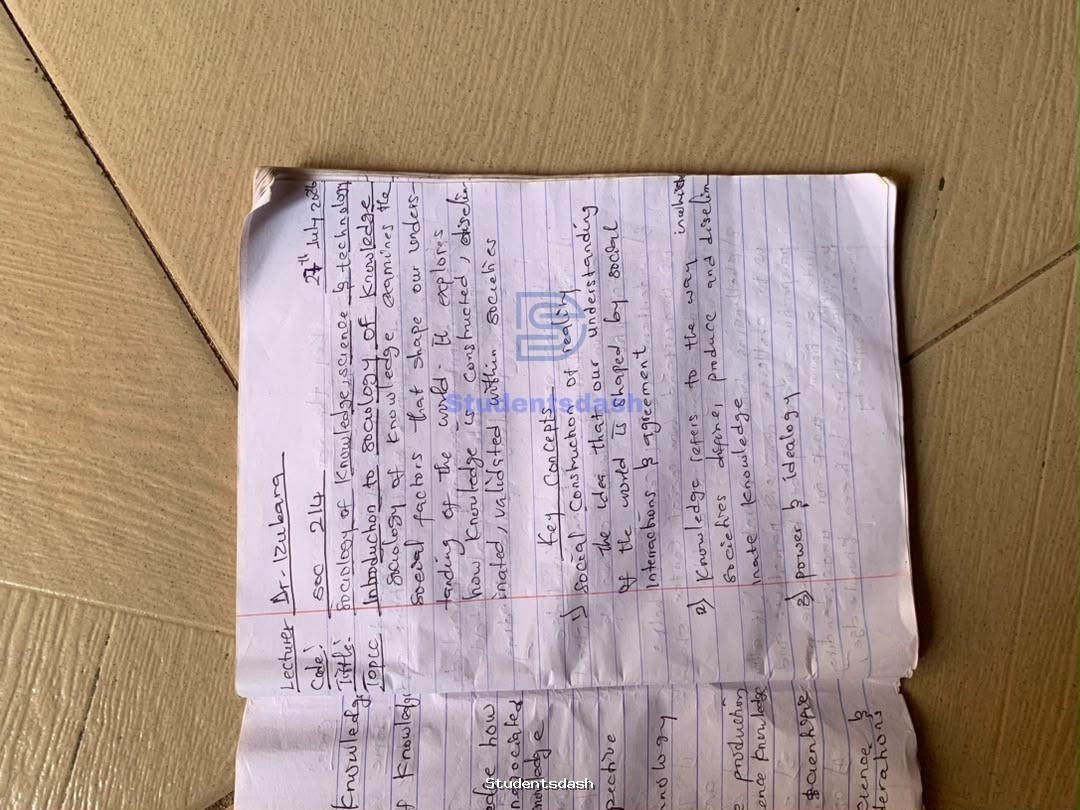 Lecturer Dr. Izubara
Code: soc 214 27th July 2026
Tittle: Sociology of Knowledge, science & technology
Topic: Introduction to sociology of Knowledge
Sociology of Knowledge examines the
social factors that shape our unders-
tanding of the world. It explores
how Knowledge is constructed, dissem
inated, validated within societies
Key Concepts
1) Social Construction of reality
the idea that our understanding
of the world is shaped by social
Interactions & agreement
2) Knowledge refers to the way inwhich
societies define, produce and dissem
inate Knowledge
3) power & idealogy
Knowledge
f Knowledge
how
nology
production
ence Knowledge
Science &
Studentsdash
Studentsdash